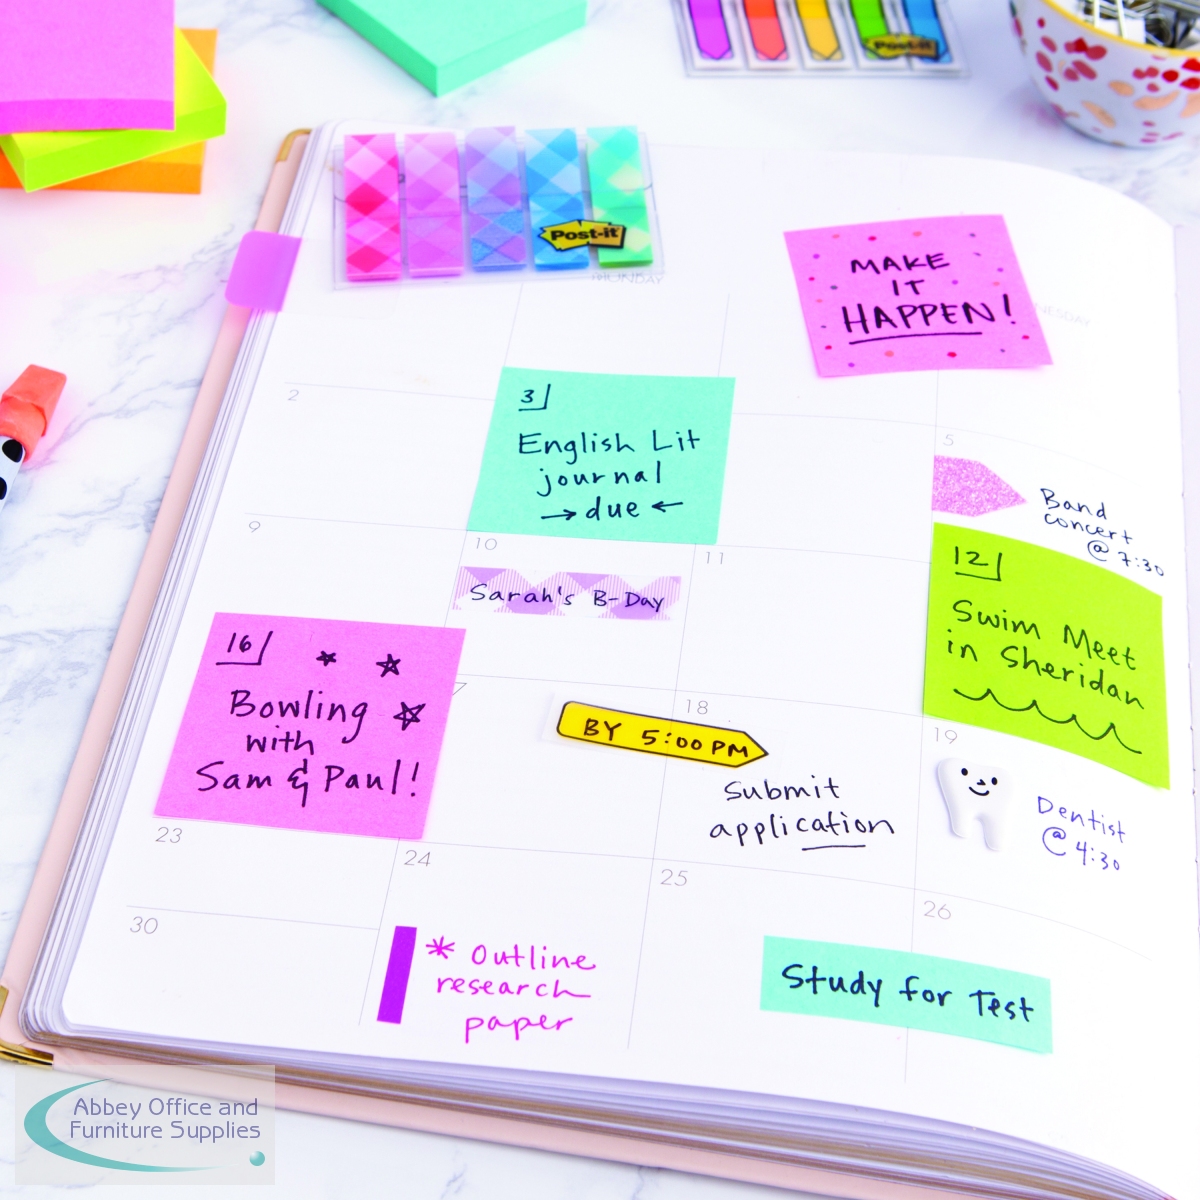 Post-it
Post-it
MONDAY
MAKE
IT
HAPPEN!
NESDAY
2
3
English Lit
journal
→ due ←
5
Band
concert
@ 7:30
9
10
Sarah's B-Day
11
12
Swim Meet
in Sheridan
16
Bowling
with
Sam & Paul!
7
BY 5:00 PM
18
Submit
application
19
Dentist
@ 4:30
23
24
* Outline
research
paper
25
26
Study for Test
30
Abbey Office and
Furniture Supplies